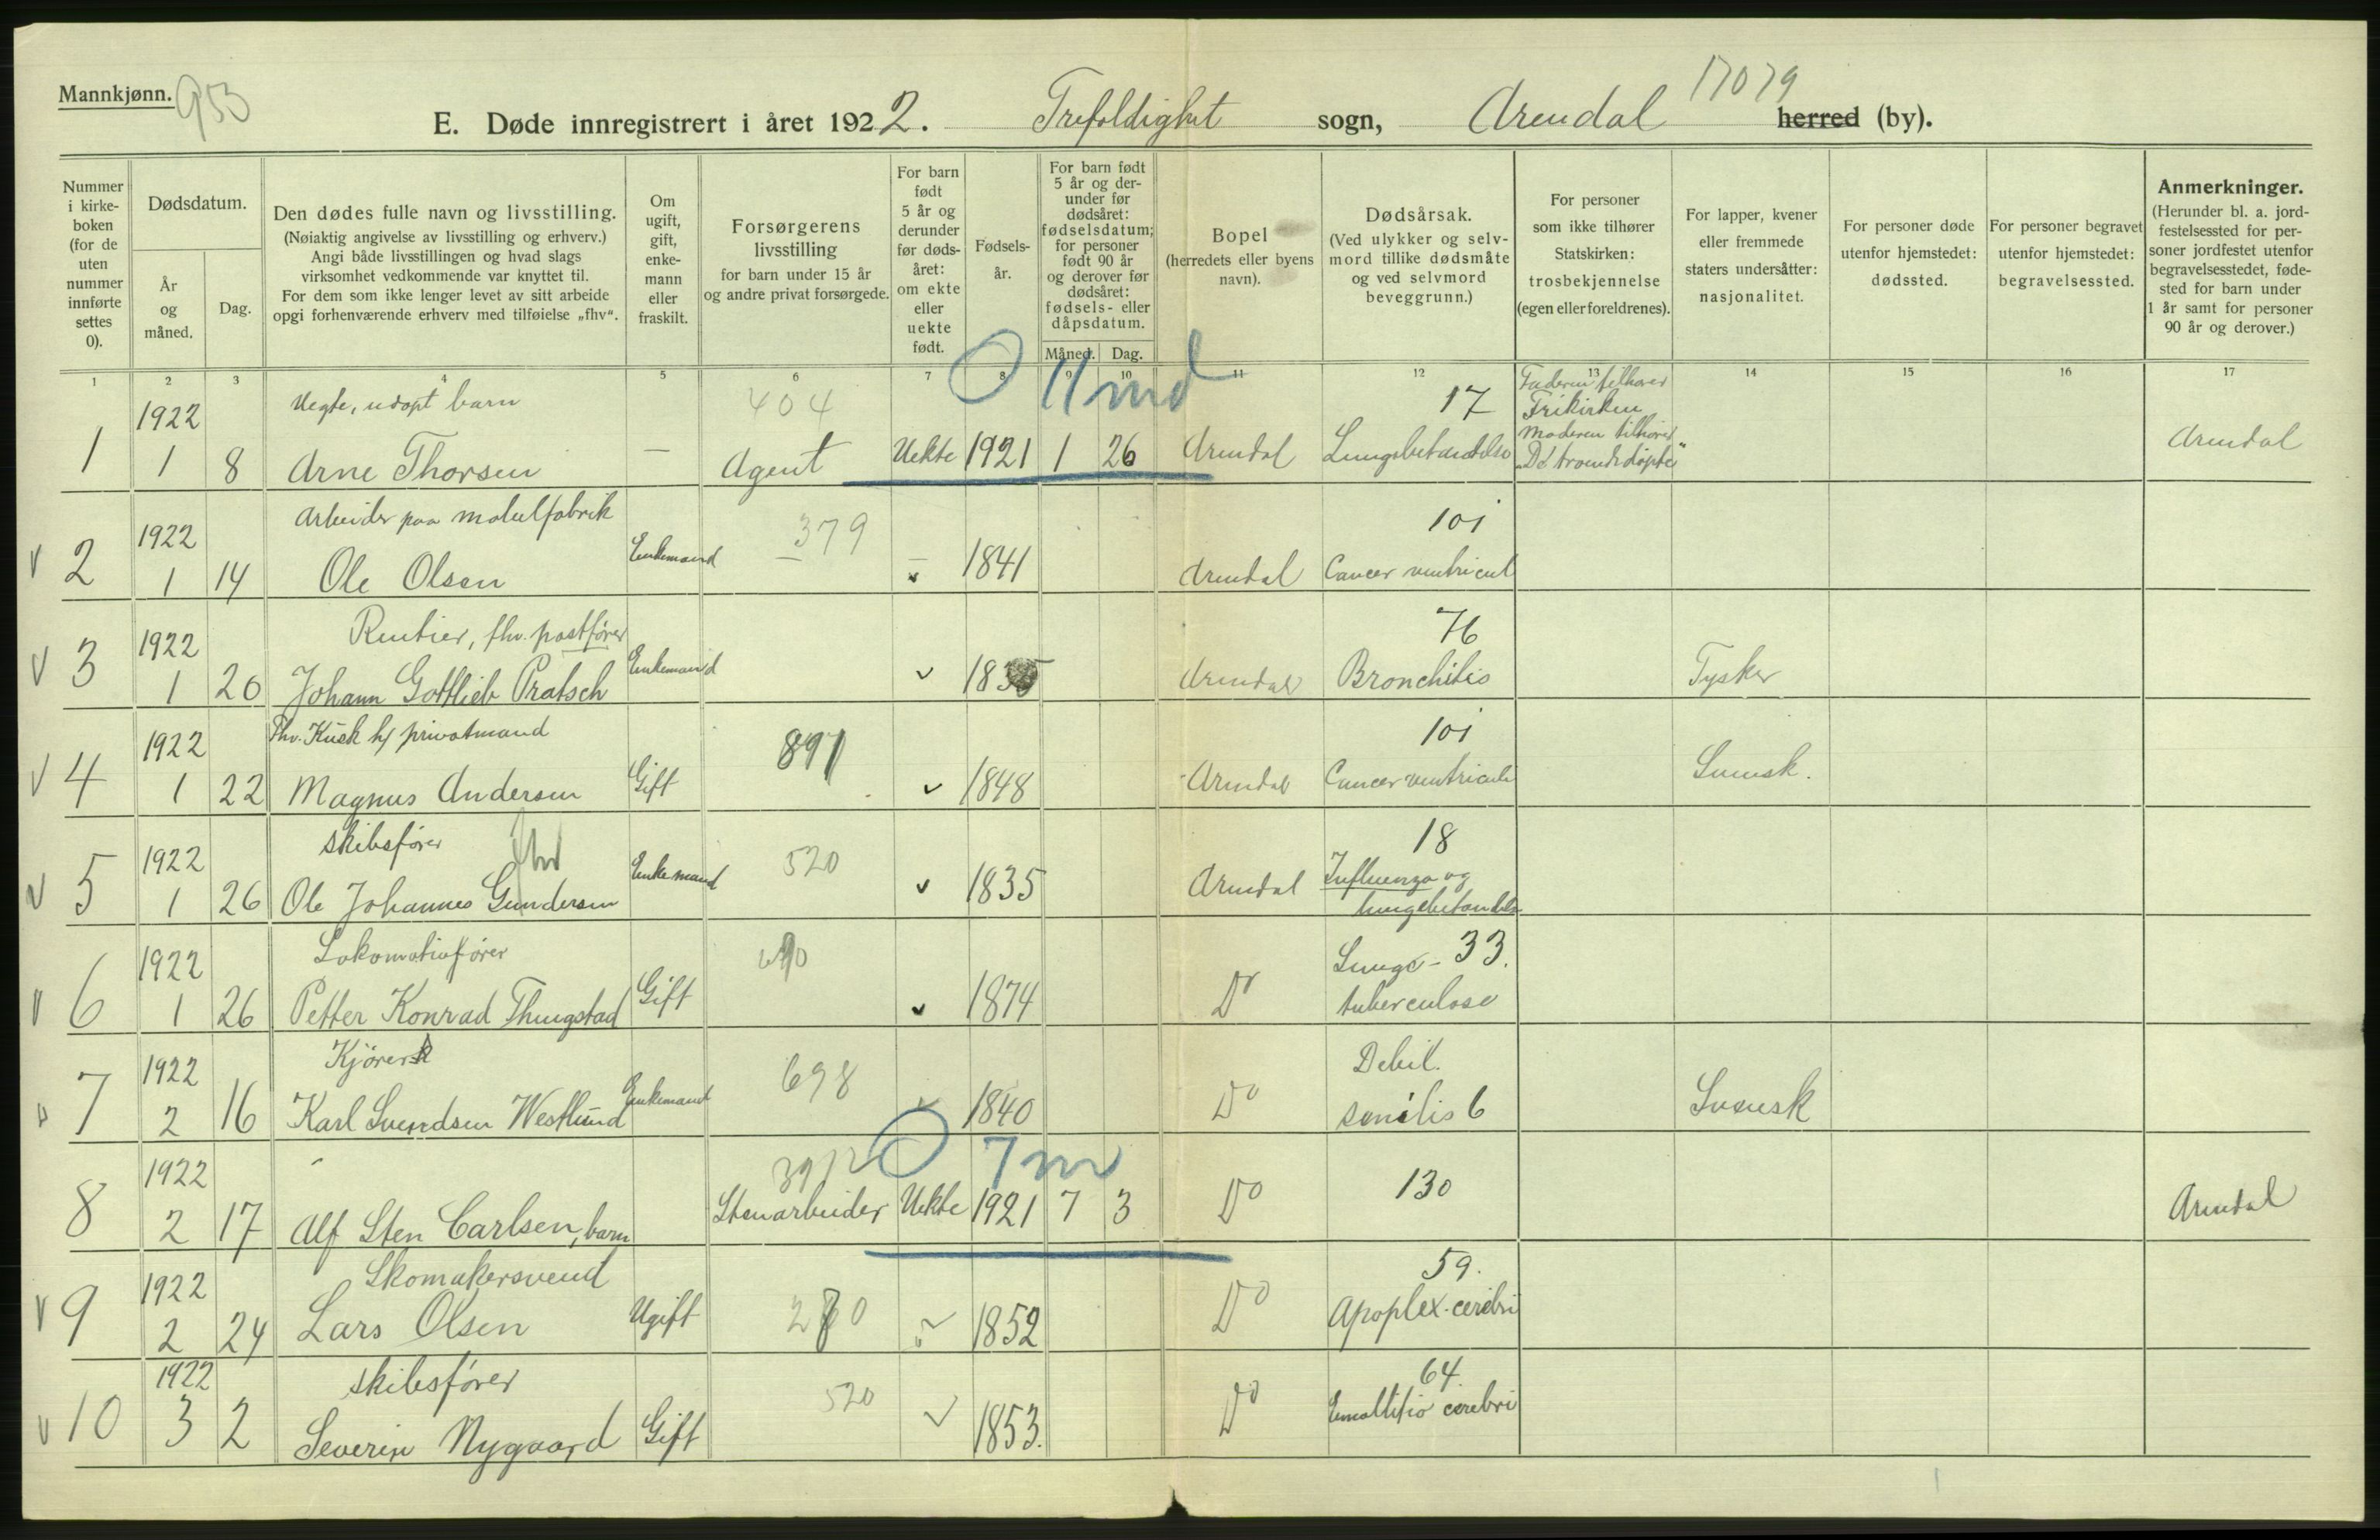 Mannkjønn. 953
17079
E. Døde innregistrert i året 1922. Trefoldighet sogn, Arendal herred (by).
Nummer i kirkeboken (for de uten nummer innførte settes 0).
Dødsdatum.
År og måned.
Dag.
Den dødes fulle navn og livsstilling.
(Nøiaktig angivelse av livsstilling og erhverv.)
Angi både livsstillingen og hvad slags
virksomhet vedkommende var knyttet til.
For dem som ikke lenger levet av sitt arbeide
opgi forhenværende erhverv med tilføielse „fhv“.
Om ugift, gift, enkemann eller fraskilt.
Forsørgerens livsstilling
for barn under 15 år
og andre privat forsørgede.
For barn født 5 år og derunder før dødsåret: om ekte eller uekte født.
Fødselsår.
For barn født 5 år og derunder før dødsåret: fødselsdatum; for personer født 90 år og derover før dødsåret: fødsels- eller dåpsdatum.
Måned. Dag.
Bopel
(herredets eller byens navn).
Dødsårsak.
(Ved ulykker og selvmord tillike dødsmåte
og ved selvmord beveggrunn.)
For personer som ikke tilhører Statskirken:
trosbekjennelse
(egen eller foreldrenes).
For lapper, kvener eller fremmede staters undersåtter:
nasjonalitet.
For personer døde utenfor hjemstedet:
dødssted.
For personer begravet utenfor hjemstedet:
begravelsessted.
Anmerkninger.
(Herunder bl. a. jordfestelsessted for personer jordfestet utenfor begravelsesstedet, fødested for barn under 1 år samt for personer 90 år og derover.)
1 2 3 4 5 6 7 8 9 10 11 12 13 14 15 16 17
0 11 md
1 1922 1 8 Uegte, adopt barn Arne Thorsen — 404 Agent Uekte 1921 1 26 Arendal 17 Lungebetændelse Faderen tilhører Frikirken Moderen tilhører „De troende døpte“ Arendal
2 1922 1 14 Arbeider paa møbelfabrik Ole Olsen Enkemand 379 1841 Arendal 101 Cancer ventricul
3 1922 1 20 Rentier, fhv. postfører Johann Gottlieb Pratsch Enkemand 1835 Arendal 76 Bronchitis Tysker
4 1922 1 22 Fhv. Kusk h/ privatmand Magnus Andersen Gift 891 1848 Arendal 101 Cancer ventriculi Svensk.
5 1922 1 26 skibsfører fhv Ole Johannes Gundersen Enkemand 520 1835 Arendal 18 Influenza og lungebetændelse
6 1922 1 26 Lokomotivfører Petter Konrad Thingstad Gift 1874 Do Lunge- 33. tuberculose
7 1922 2 16 Kjører Karl Svendsen Westlund Enkemand 698 1840 Do Debil. senilis 6 Svensk
0 7 m
8 1922 2 17 Alf Sten Carlsen, barn Stenarbeider Uekte 1921 7 3 Do 130 Arendal
9 1922 2 24 Skomakersvend Lars Olsen Ugift 280 1852 Do 59. Apoplex. cerebri
10 1922 3 2 skibsfører Severin Nygaard Gift 520 1853. Do 64. Emollitio cerebri